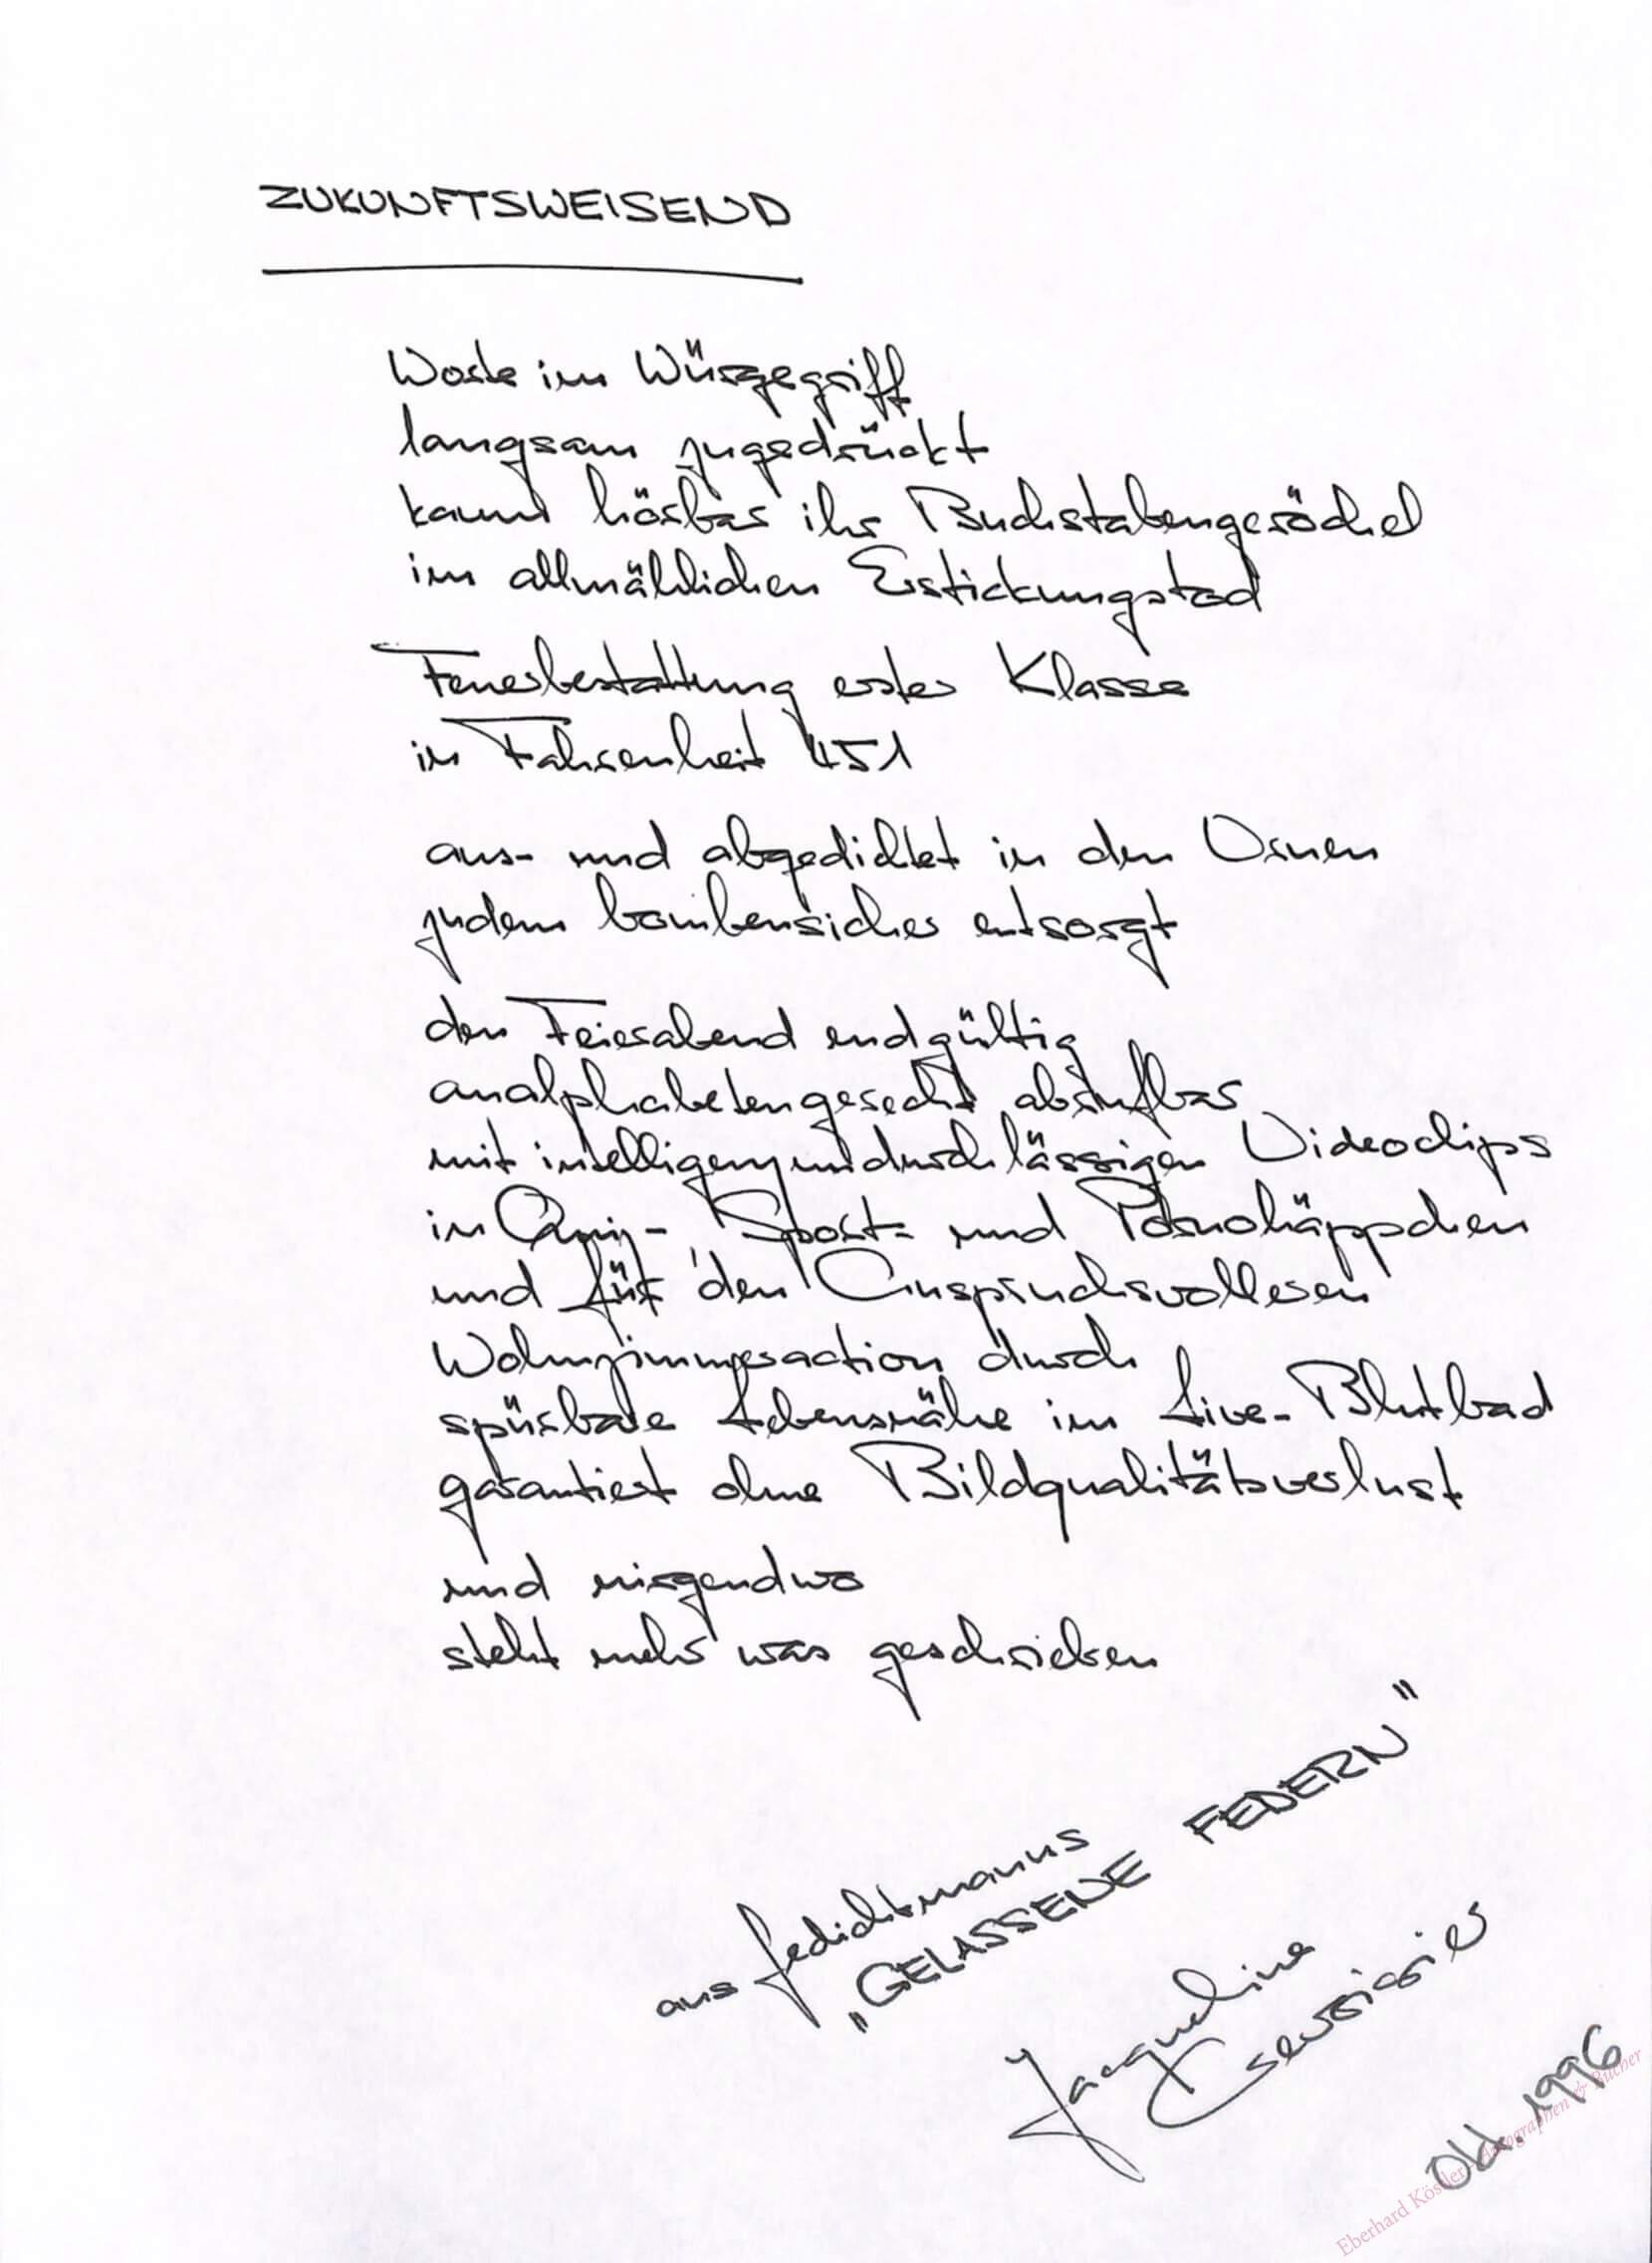 ZUKUNFTSWEISEND
Worte im Würgegriff
langsam zugedrückt
kaum hörbar ihr Buchstabengeröchel
im allmählichen Erstickungstod
Feuerbestattung erster Klasse
in Fahrenheit 451
aus- und abgedichtet in den Urnen
zudem bombensicher entsorgt
den Feierabend endgültig
analphabetengerecht abrufbar
mit intelligenzundurchlässigen Videoclips
in Quiz-, Sport- und Pornohäppchen
und für den Anspruchsvolleren
Wohnzimmeraction durch
spürbare Lebensnähe im Live-Blutbad
garantiert ohne Bildqualitätsverlust
und nirgendwo
steht mehr was geschrieben
aus Gedichtmanus
"GELASSENE FEDERN"
Jacqueline
Crevoisier
Okt. 1996
Eberhard Köstler Autographen & Bücher